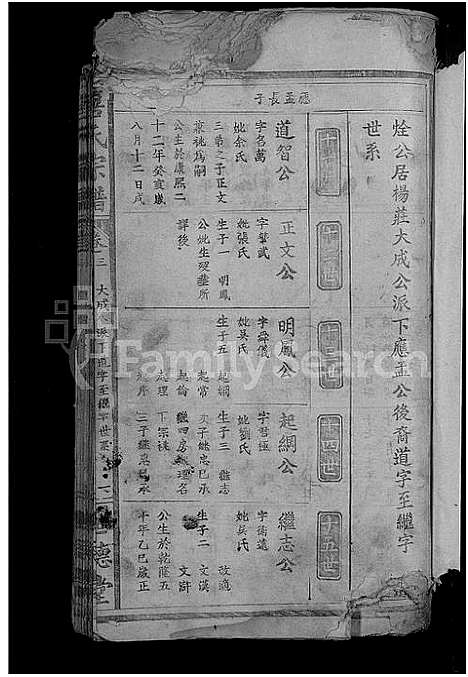 烇公居楊莊大成公派下應孟公後裔道字至繼字
世系
十一世
十二世
十三世
十四世
十五世
應孟長子
道智公
字名萬
妣余氏
三弟之子正文
承祧爲嗣
公生於康熙二
十二年癸亥歲
八月十二日戌
正文公
妣張氏
生子一 明鳳
公妣生歿塟所
詳後
明鳳公
字舜儀
妣吳氏
生子五
起綱
起常
起倫
起理
起序
起綱公
妣劉氏
生子三 繼志
次子繼忠已承
下宗祧
繼志公
字衛遠
妣吳氏 改適
生子二 文漢
文澍
公生於乾隆五
十年乙巳歲正
宗譜
卷三
大成公派下道字至繼字世系
德堂
FamilySearch